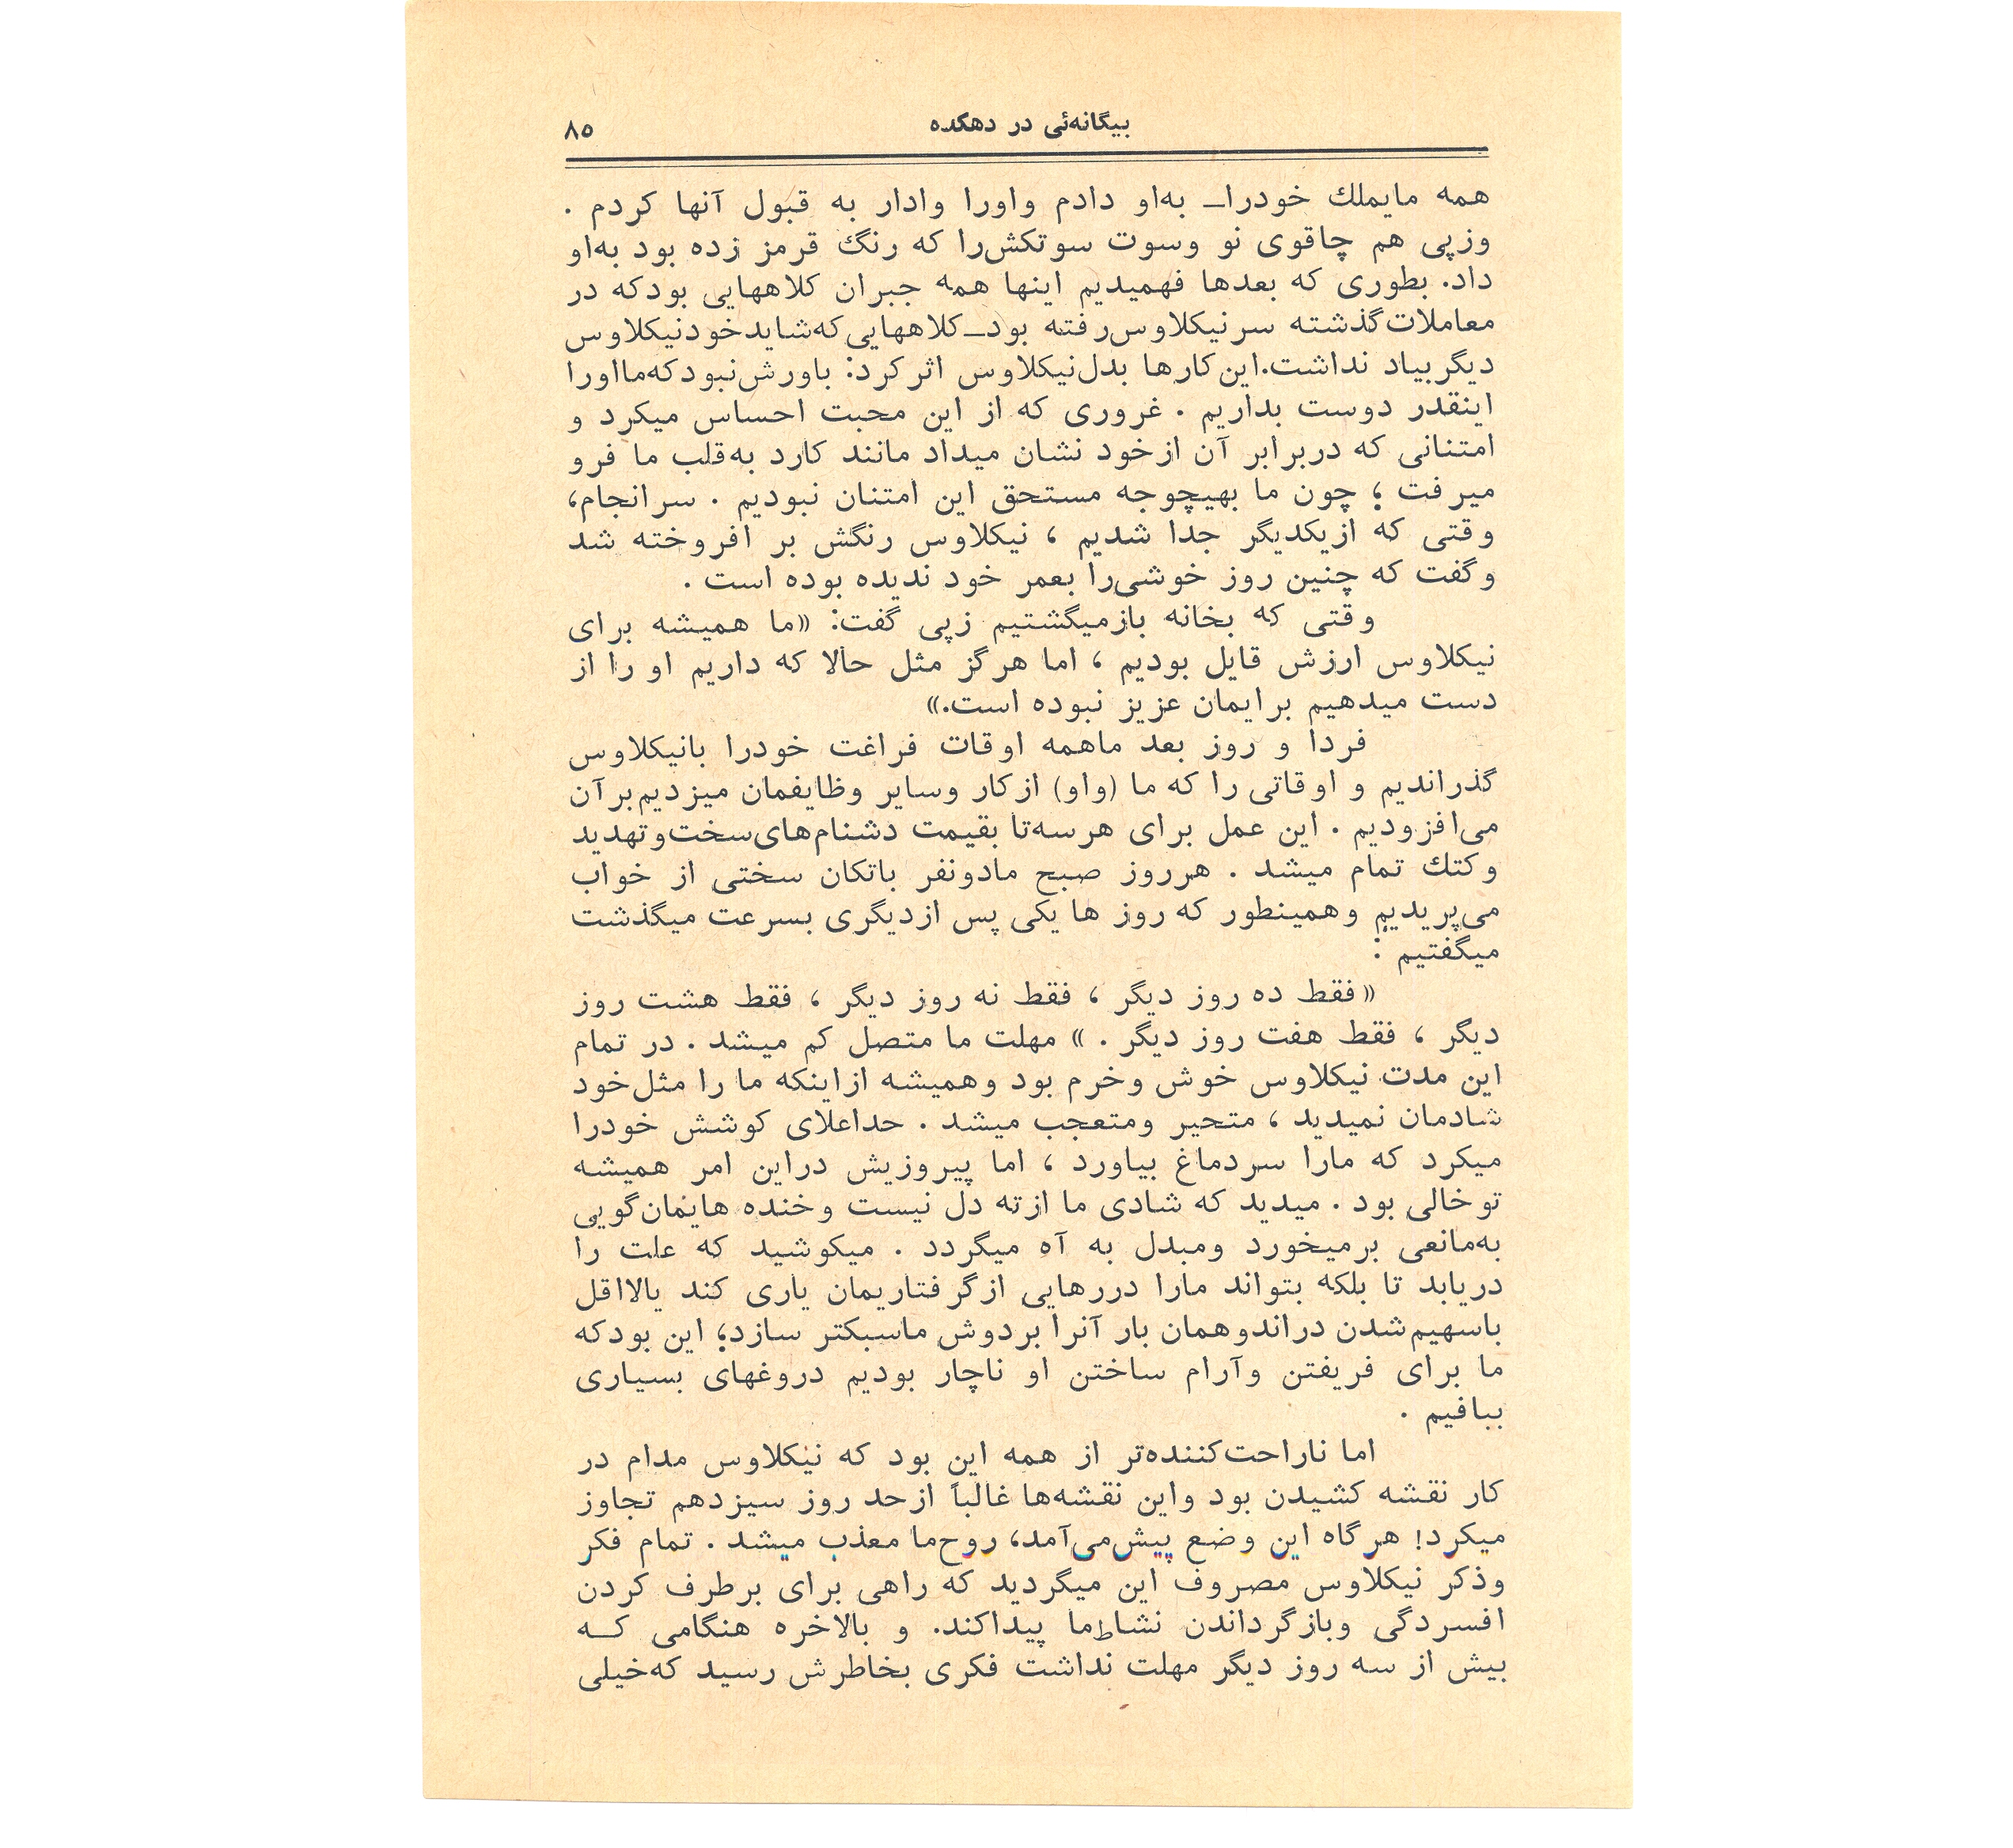 بیگانه‌ئی در دهکده ۸۵
همه مایملك خودرا_ به‌او دادم واورا وادار به قبول آنها کردم .
وزپی هم چاقوی نو وسوت سوتکش‌را که رنگ قرمز زده بود به‌او
داد. بطوری که بعدها فهمیدیم اینها همه جبران کلاههایی بودکه در
معاملات‌گذشته سرنیکلاوس‌رفته بود_کلاههایی‌که‌شایدخودنیکلاوس
دیگربیاد نداشت.این‌کارها بدل‌نیکلاوس اثرکرد: باورش‌نبودکه‌مااورا
اینقدر دوست بداریم . غروری که از این محبت احساس میکرد و
امتنانی که دربرابر آن ازخود نشان میداد مانند کارد به‌قلب ما فرو
میرفت ؛ چون ما بهیچوجه مستحق این امتنان نبودیم . سرانجام،
وقتی که ازیکدیگر جدا شدیم ، نیکلاوس رنگش بر افروخته شد
وگفت که چنین روز خوشی‌را بعمر خود ندیده بوده است .
وقتی که بخانه بازمیگشتیم زپی گفت: «ما همیشه برای
نیکلاوس ارزش قایل بودیم ، اما هرگز مثل حالا که داریم او را از
دست میدهیم برایمان عزیز نبوده است.»
فردا و روز بعد ماهمه اوقات فراغت خودرا بانیکلاوس
گذراندیم و اوقاتی را که ما (واو) ازکار وسایر وظایفمان میزدیم‌برآن
می‌افزودیم . این عمل برای هرسه‌تا بقیمت دشنام‌های‌سخت‌وتهدید
وکتك تمام میشد . هرروز صبح مادونفر باتکان سختی از خواب
می‌پریدیم وهمینطور که روز ها یکی پس ازدیگری بسرعت میگذشت
میگفتیم :
«فقط ده روز دیگر ، فقط نه روز دیگر ، فقط هشت روز
دیگر ، فقط هفت روز دیگر . » مهلت ما متصل کم میشد . در تمام
این مدت نیکلاوس خوش وخرم بود وهمیشه ازاینکه ما را مثل‌خود
شادمان نمیدید ، متحیر ومتعجب میشد . حداعلای کوشش خودرا
میکرد که مارا سردماغ بیاورد ، اما پیروزیش دراین امر همیشه
توخالی بود . میدید که شادی ما ازته دل نیست وخنده هایمان‌گویی
به‌مانعی برمیخورد ومبدل به آه میگردد . میکوشید که علت را
دریابد تا بلکه بتواند مارا دررهایی ازگرفتاریمان یاری کند یالااقل
باسهیم‌شدن دراندوهمان بار آنرا بردوش ماسبکتر سازد؛ این بودکه
ما برای فریفتن وآرام ساختن او ناچار بودیم دروغهای بسیاری
ببافیم .
اما ناراحت‌کننده‌تر از همه این بود که نیکلاوس مدام در
کار نقشه کشیدن بود واین نقشه‌ها غالباً ازحد روز سیزدهم تجاوز
میکرد! هرگاه این وضع پیش‌می‌آمد، روح‌ما معذب میشد . تمام فکر
وذکر نیکلاوس مصروف این میگردید که راهی برای برطرف کردن
افسردگی وبازگرداندن نشاط‌ما پیداکند. و بالاخره هنگامی کــه
بیش از سه روز دیگر مهلت نداشت فکری بخاطرش رسید که‌خیلی